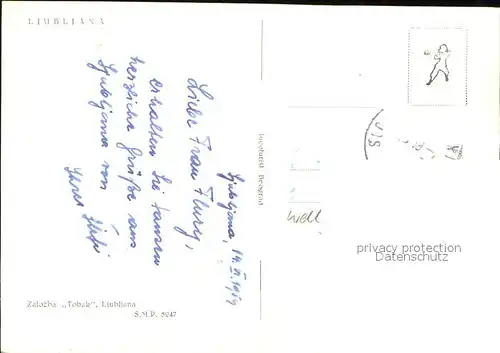 LJUBLJANA
Ljubljana, 14. V. 1959
Liebe Frau Flury,
erhalten Sie tausen
herzliche Grüße aus
Ljubljana von
Ihrer Stefi
Založba „Tobak", Ljubljana
S.M.P. 5247
Beograd
Well
privacy protection
Datenschutz